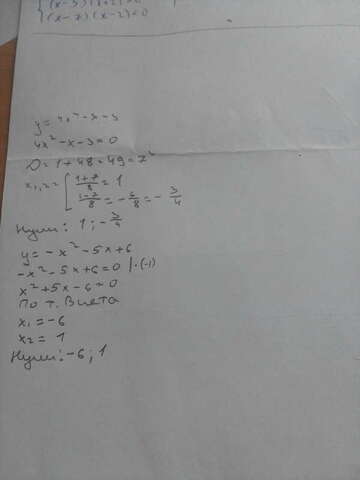 (x-5)(x+2)=0
(x-7)(x-2)=0
y=4x²-x-3
4x²-x-3=0
D=1+48=49=7²
x₁,₂=[ (1+7)/8=1
(1-7)/8=-6/8=-3/4
Нули: 1; -3/4
y=-x²-5x+6
-x²-5x+6=0 |·(-1)
x²+5x-6=0
По т. Виета
x₁=-6
x₂=1
Нули: -6; 1